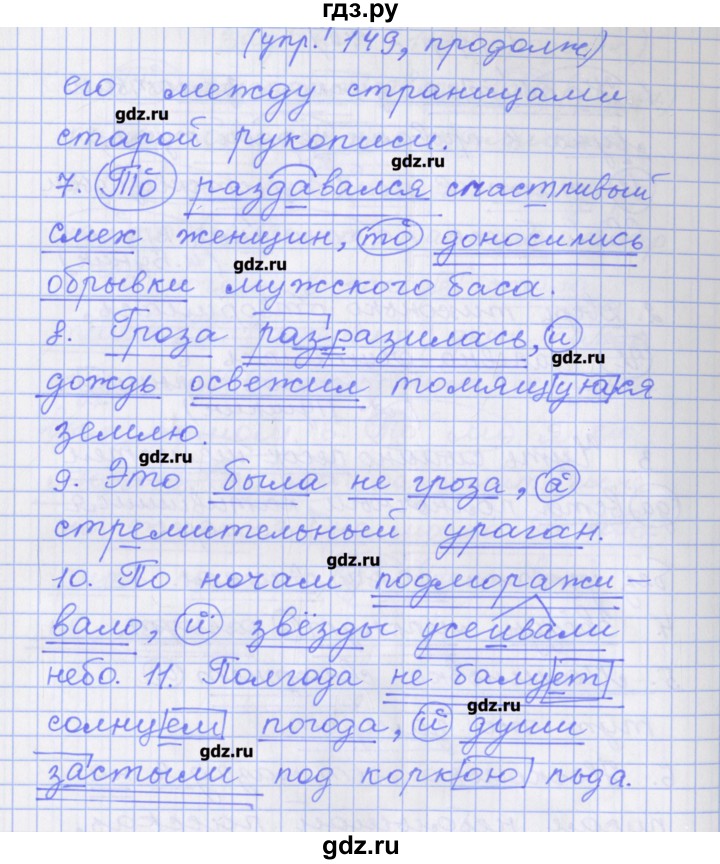 гдз.ру
(упр. 149, продолж)
его между страницами
gdz.ru
старой рукописи.
gdz.ru
7. То раздавался счастливый
смех женщин, то доносились
gdz.ru
обрывки мужского баса.
8. Гроза разразилась, и
gdz.ru
дождь освежил томящуюся
землю.
gdz.ru
9. Это была не гроза, а
стремительный ураган.
gdz.ru
10. По ночам подморажи-
вало, и звёзды усеивали
небо. 11. Полгода не балует
gdz.ru
солнцем погода, и души
gdz.ru
застыли под коркою льда.
gdz.ru